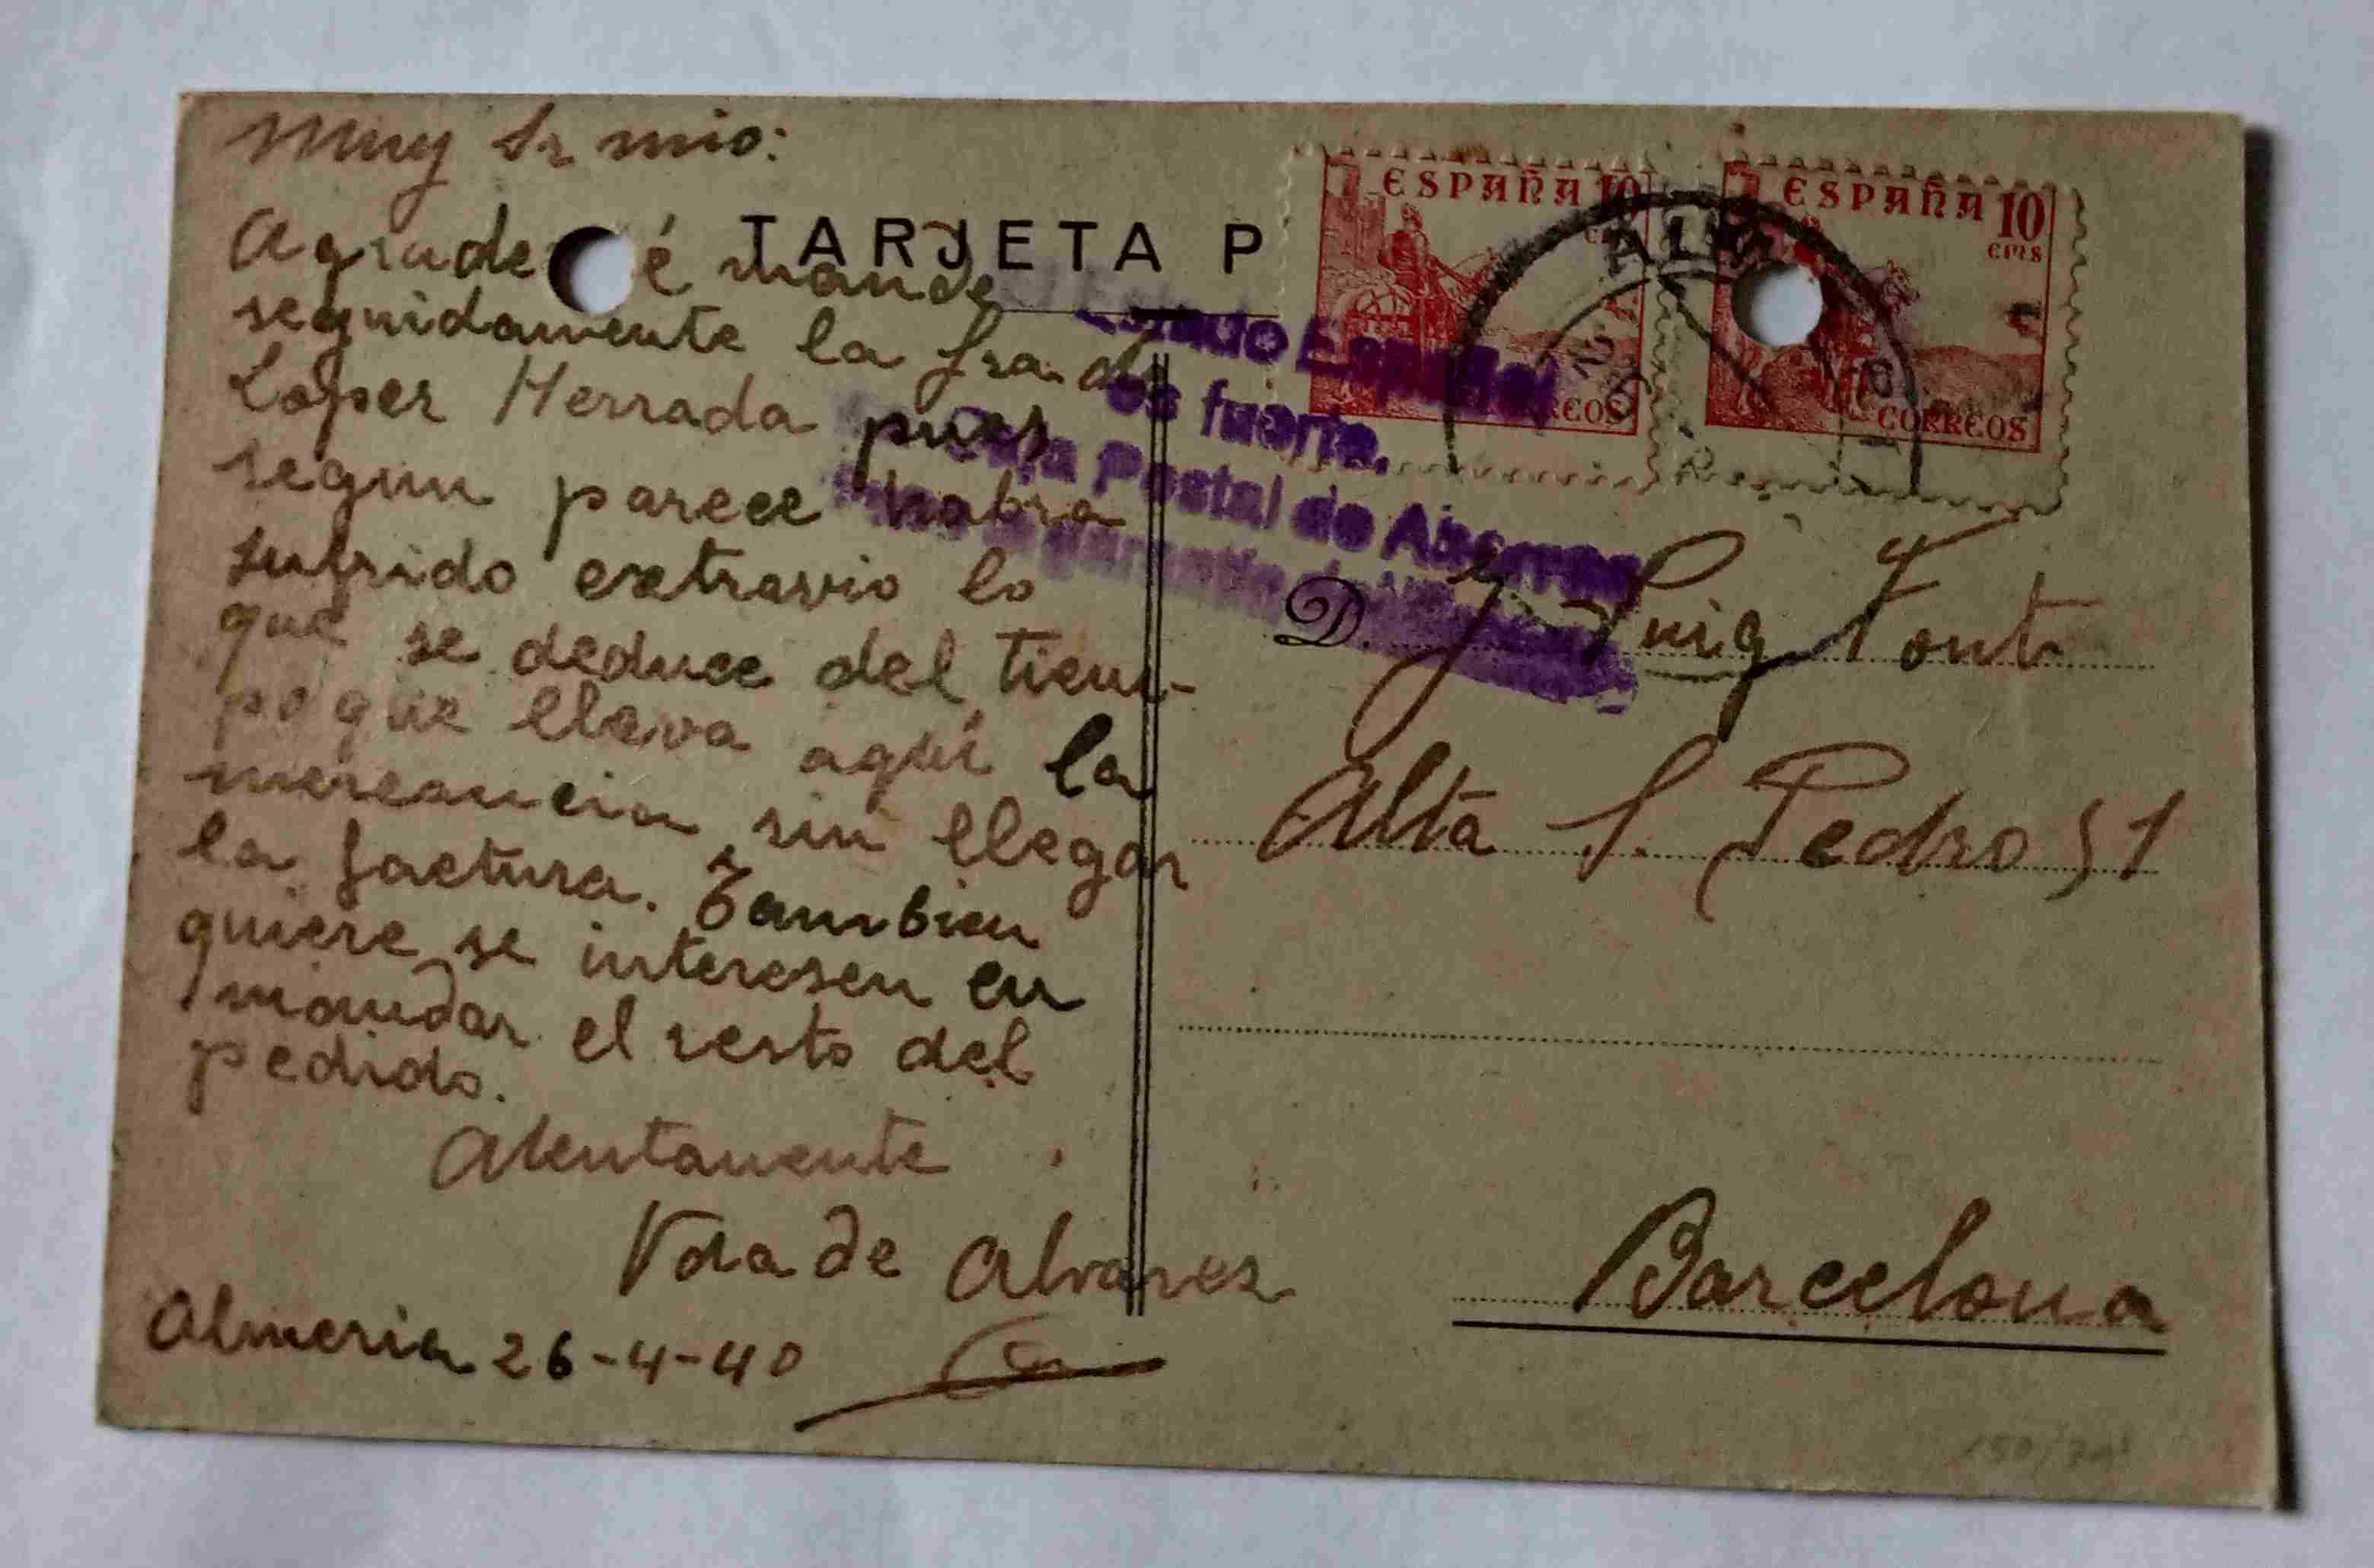 Muy Sr mio:
Agrade é mande
seguidamente la fra. de
Lopez Herrada pues
segun parece habra
sufrido extravio lo
que se deduce del tiem-
po que lleva aquí la
mercancia sin llegar
la factura. Tambien
quiere se interesen en
mandar el resto del
pedido.
Atentamente
Vda de Alvarez
Almeria 26-4-40
TARJETA P
ESPAÑA 10
CORREOS
ESPAÑA 10
CTMS
CORREOS
ALM
Estado Español
es fuerte.
Caja Postal de Ahorros
garantía
D. J. Puig Font
Alta S. Pedro 51
Barcelona